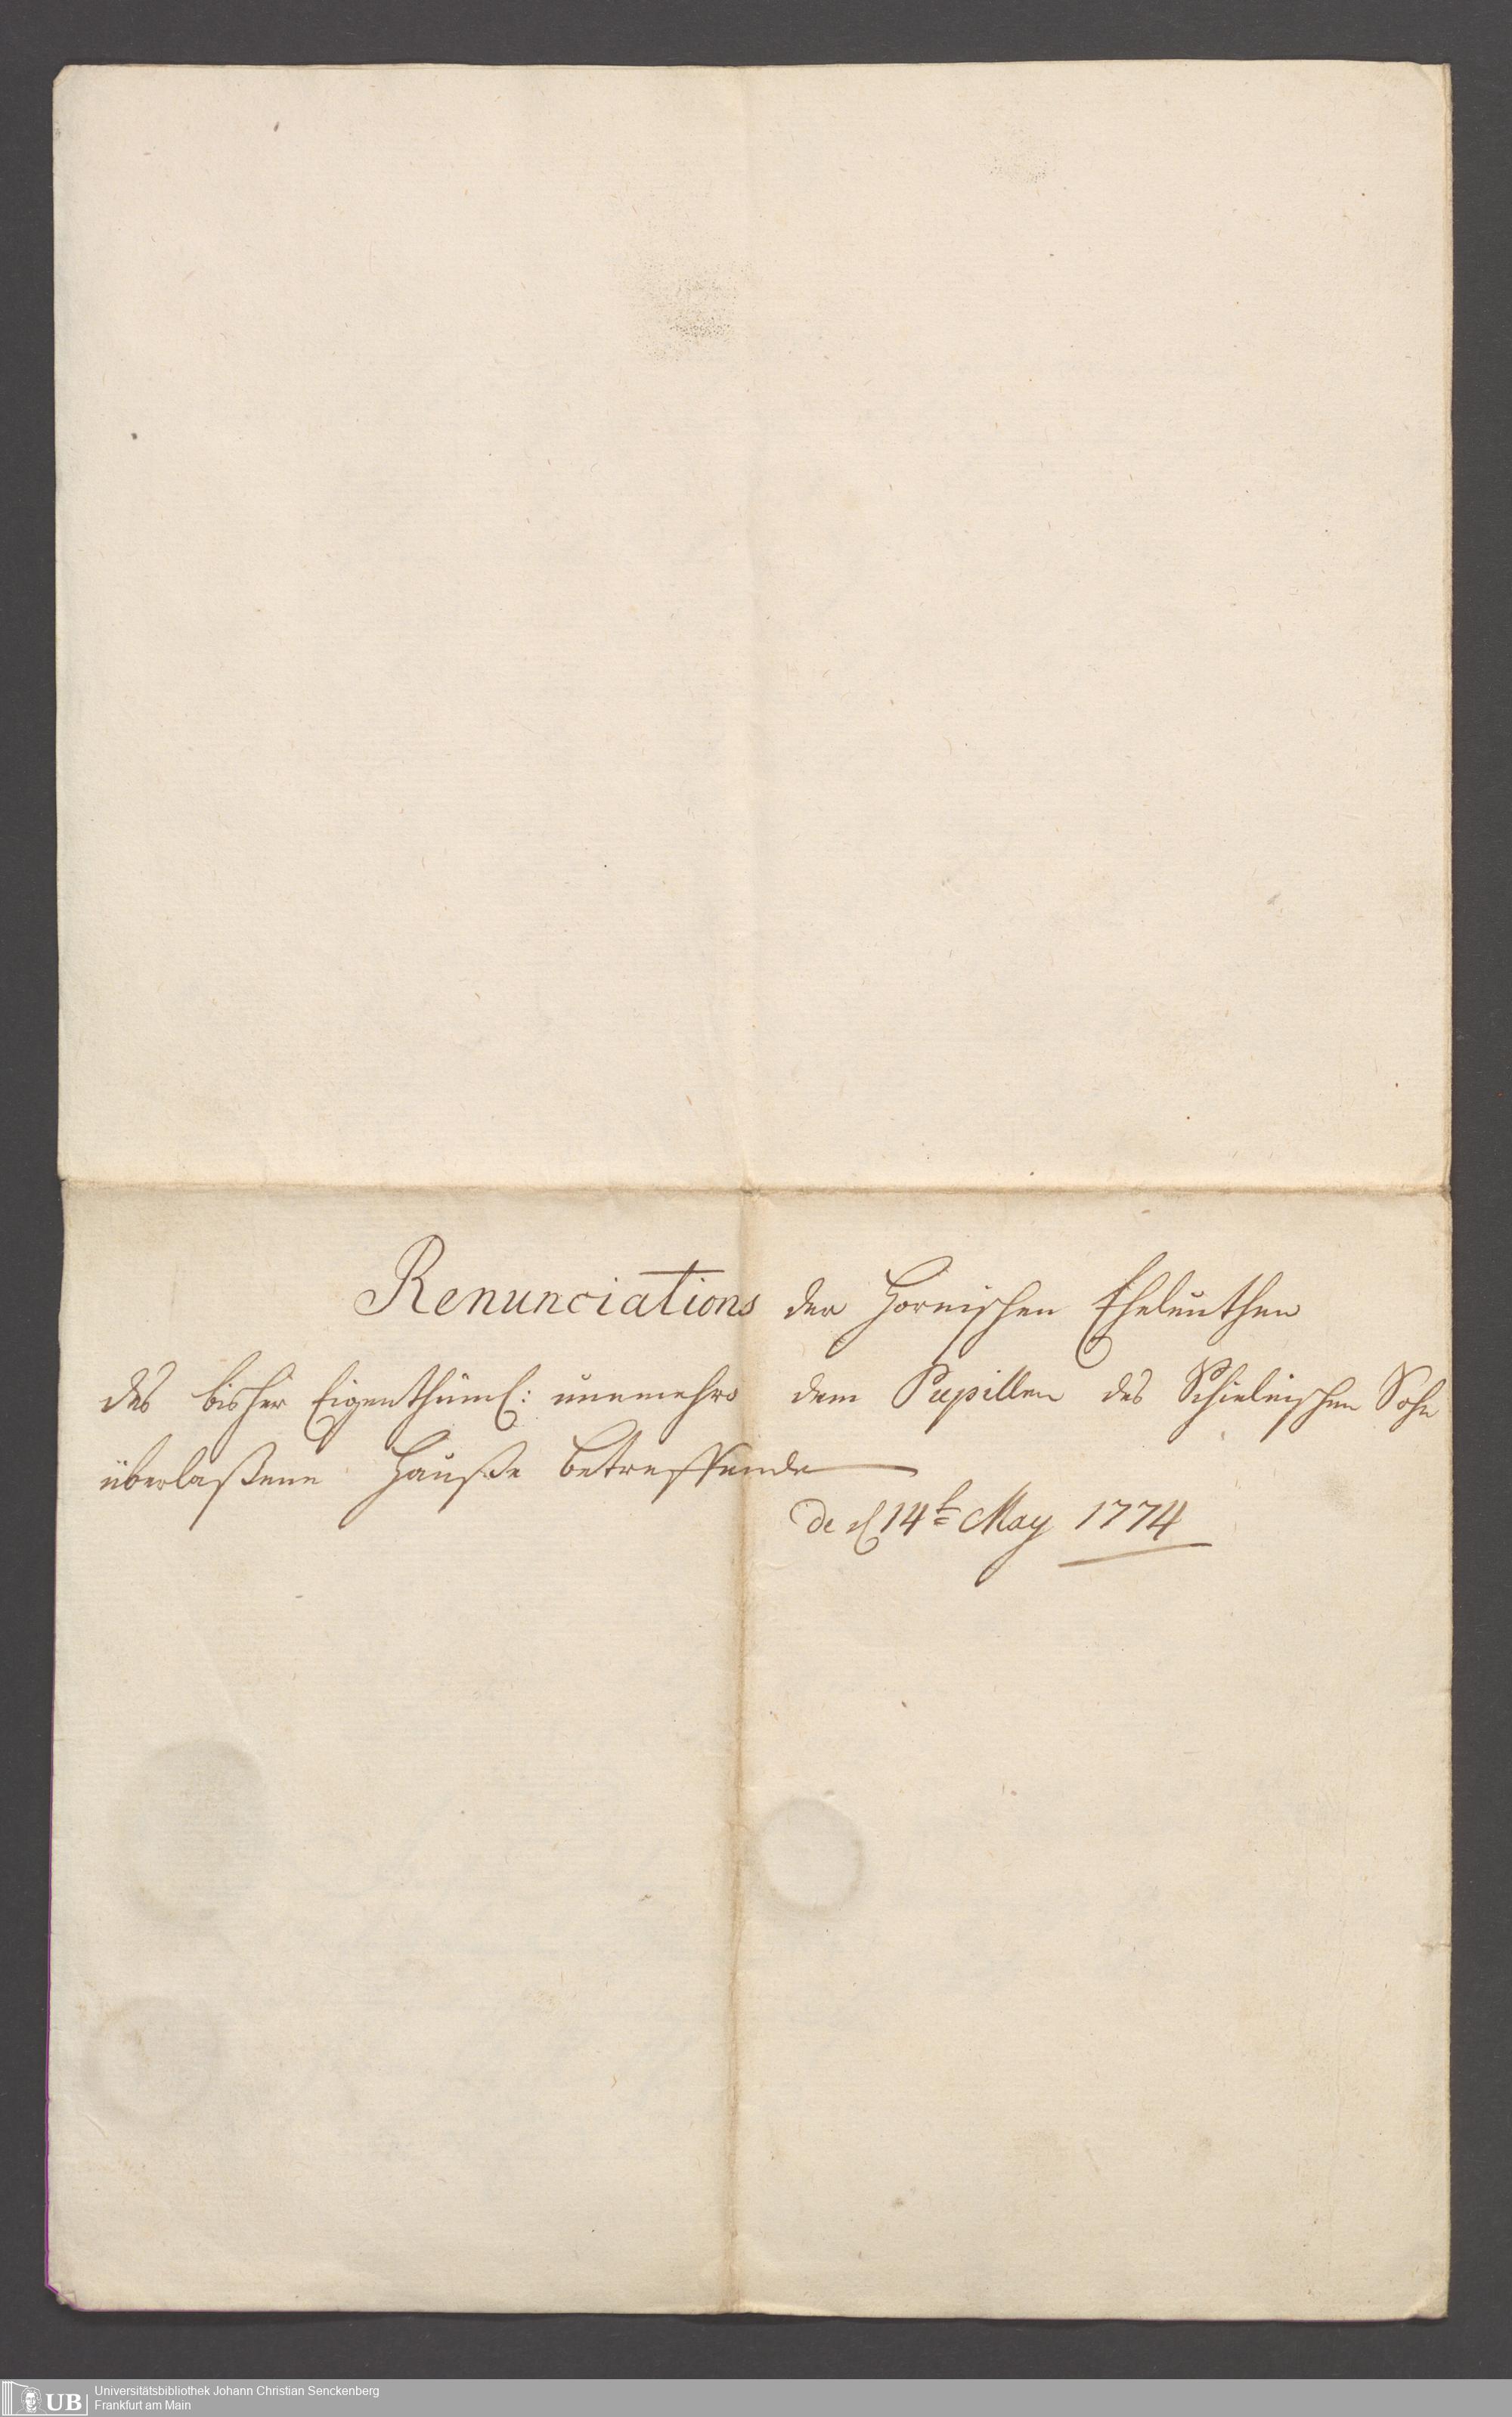 Renunciations der Hornischen Eheleuthen
des bisher Eigenthüml: nunmehro dem Pupillen des Schieleischen Sohn
überlaßene Hauße betreffende
de d 14t May 1774
UB
Universitätsbibliothek Johann Christian Senckenberg
Frankfurt am Main